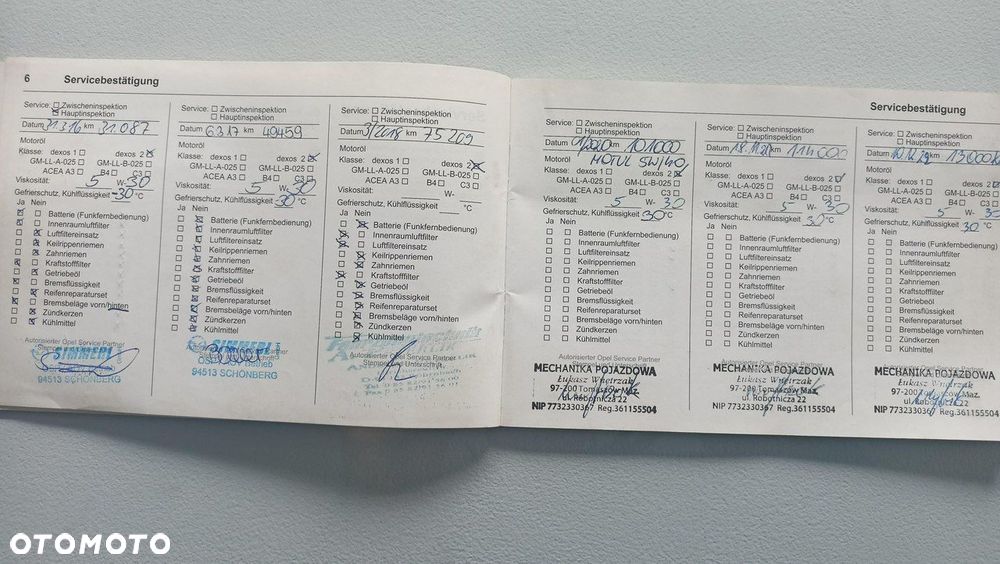 6 Servicebestätigung
Service: Zwischeninspektion
Hauptinspektion
Datum 31.3.16 km 31.087
Motoröl
Klasse: dexos 1 dexos 2
GM-LL-A-025 GM-LL-B-025
ACEA A3 B4 C3
Viskosität: 5 W-30
Gefrierschutz, Kühlflüssigkeit -30 °C
Ja Nein
Batterie (Funkfernbedienung)
Innenraumluftfilter
Luftfiltereinsatz
Keilrippenriemen
Zahnriemen
Kraftstofffilter
Getriebeöl
Bremsflüssigkeit
Reifenreparaturset
Bremsbeläge vorn/hinten
Zündkerzen
Kühlmittel
Autorisierter Opel Service Partner
SIMMERL
94513 SCHÖNBERG
Service: Zwischeninspektion
Hauptinspektion
Datum 6.3.17 km 49459
Motoröl
Klasse: dexos 1 dexos 2
GM-LL-A-025 GM-LL-B-025
ACEA A3 B4 C3
Viskosität: 5 W-30
Gefrierschutz, Kühlflüssigkeit 30 °C
Ja Nein
Batterie (Funkfernbedienung)
Innenraumluftfilter
Luftfiltereinsatz
Keilrippenriemen
Zahnriemen
Kraftstofffilter
Getriebeöl
Bremsflüssigkeit
Reifenreparaturset
Bremsbeläge vorn/hinten
Zündkerzen
Kühlmittel
SIMMERL
94513 SCHÖNBERG
Service: Zwischeninspektion
Hauptinspektion
Datum 3/2018 km 75209
Motoröl
Klasse: dexos 1 dexos 2
GM-LL-A-025 GM-LL-B-025
ACEA A3 B4 C3
Viskosität: W-
Gefrierschutz, Kühlflüssigkeit °C
Ja Nein
Batterie (Funkfernbedienung)
Innenraumluftfilter
Luftfiltereinsatz
Keilrippenriemen
Zahnriemen
Kraftstofffilter
Getriebeöl
Bremsflüssigkeit
Reifenreparaturset
Bremsbeläge vorn/hinten
Zündkerzen
Kühlmittel
Autorisierter Opel Service Partner
Servicebestätigung
Service: Zwischeninspektion
Hauptinspektion
Datum km 101000
Motoröl MOTUL 5W40
Klasse: dexos 1 dexos 2
GM-LL-A-025 GM-LL-B-025
ACEA A3 B4 C3
Viskosität: 5 W-30
Gefrierschutz, Kühlflüssigkeit 30 °C
Ja Nein
Batterie (Funkfernbedienung)
Innenraumluftfilter
Luftfiltereinsatz
Keilrippenriemen
Zahnriemen
Kraftstofffilter
Getriebeöl
Bremsflüssigkeit
Reifenreparaturset
Bremsbeläge vorn/hinten
Zündkerzen
Kühlmittel
Autorisierter Opel Service Partner
MECHANIKA POJAZDOWA
Łukasz Wnętrzak
97-200 Tomaszów Maz.
ul. Robotnicza 22
NIP 7732330367 Reg.361155504
Service: Zwischeninspektion
Hauptinspektion
Datum km
Motoröl
Klasse: dexos 1 dexos 2
GM-LL-A-025 GM-LL-B-025
ACEA A3 B4 C3
Viskosität: 5 W-30
Gefrierschutz, Kühlflüssigkeit 30 °C
Ja Nein
Batterie (Funkfernbedienung)
Innenraumluftfilter
Luftfiltereinsatz
Keilrippenriemen
Zahnriemen
Kraftstofffilter
Getriebeöl
Bremsflüssigkeit
Reifenreparaturset
Bremsbeläge vorn/hinten
Zündkerzen
Kühlmittel
Autorisierter Opel Service Partner
MECHANIKA POJAZDOWA
Łukasz Wnętrzak
97-200 Tomaszów Maz.
ul. Robotnicza 22
NIP 7732330367 Reg.361155504
Service: Zwischeninspektion
Hauptinspektion
Datum km
Motoröl
Klasse: dexos 1 dexos 2
GM-LL-A-025 GM-LL-B-025
ACEA A3 B4 C3
Viskosität: 5 W-
Gefrierschutz, Kühlflüssigkeit 30 °C
Ja Nein
Batterie (Funkfernbedienung)
Innenraumluftfilter
Luftfiltereinsatz
Keilrippenriemen
Zahnriemen
Kraftstofffilter
Getriebeöl
Bremsflüssigkeit
Reifenreparaturset
Bremsbeläge vorn/hinten
Zündkerzen
Kühlmittel
Autorisierter Opel Service Partner
MECHANIKA POJAZDOWA
Łukasz Wnętrzak
97-200 Tomaszów Maz.
ul. Robotnicza 22
NIP 7732330367 Reg.361155504
OTOMOTO